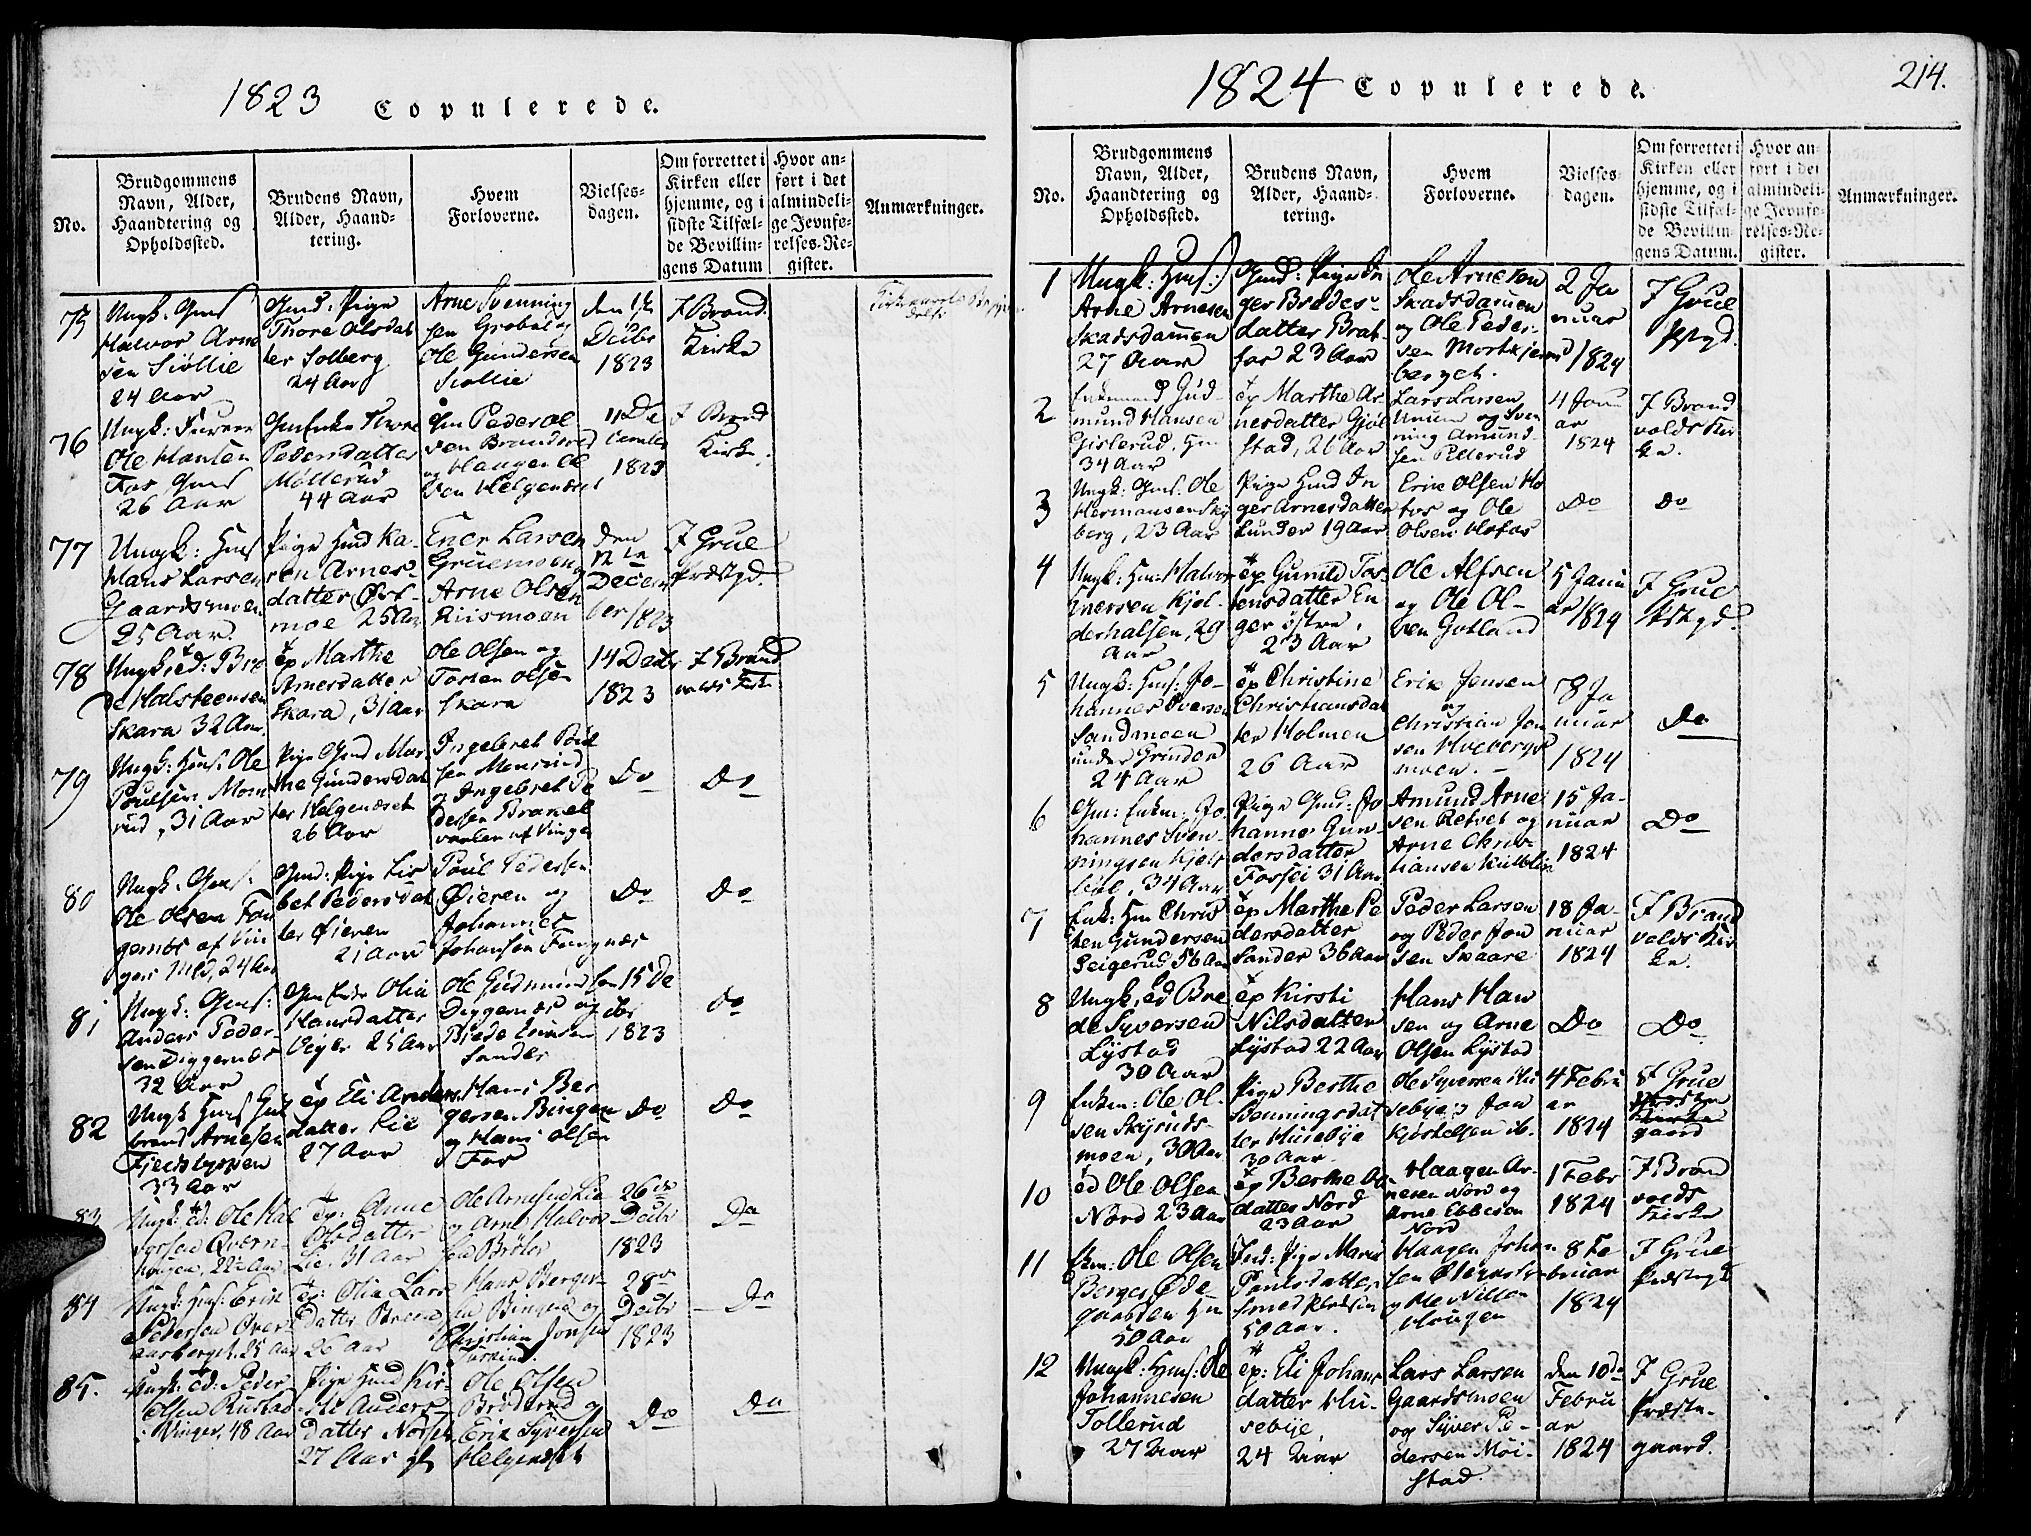 1823 Copulerede.
No.
Brudgommens
Navn, Alder,
Haandtering og
Opholdssted.
Brudens Navn,
Alder, Haand-
tering.
Hvem
Forloverne.
Vielses-
dagen.
Om forrettet i
Kirken eller
hjemme, og i
sidste Tilfæl-
de Bevillin-
gens Datum
Hvor an-
ført i det
almindeli-
ge Jevnfø-
relses-Re-
gister.
Anmærkninger.
75
Ungk. Gms
Halvor Arne
sen Siøllie
24 Aar
Gmd: Pige
Thore Olsdat
ter Solberg
24 Aar
Arne Svenning
sen Grøbøl og
Ole Gundersen
Siøllie
Decbr
1823
I Brand.
Kirke
76
Ole Hansen
Fos, Gms
26 Aar
Pedersdatter
Møllerud
44 Aar
Gm Peder Ol
sen Branderud
og Haagen Ol
sen Helgenæset
11 De
cember
1823
I Brand
Kirke.
77
Ungk: Hms
Hans Larsen
Gaardsmoen
25 Aar.
Pige Hmd Ka-
ren Arnes-
datter
moe 25 Aar
Ener Larsen
Gruemoen og
Arne Olsen
Riismoen
den
12te
Decem
ber 1823
I Grue
Præstgd.
78
de Halsteensen
Skara 32 Aar
ep Marthe
Arnesdatter
Skara, 31 Aar
Ole Olsen og
Torsten Olsen
Skara
14 Decbr
1823
I Brand
volds Kirke
79
Ungk: Hms: Ole
Poulsen Mom
rud, 31 Aar
Pige Gmd Mar
the Gundersdat
ter Helgenæset
26 Aar
Ingebret Poul
sen Momrud
og Ingebret Pe
dersen Branel
vaalen af Vinger
Do
Do
80
Ungk. Gms:
Ole Olsen Fon
gernæs af Vin
ger 24 Aar
Gmd: Pige Lis
bet Pedersdat
ter Øieren
21 Aar
Poul Pedersen
Øieren og
Johannes
Johansen Fongnæs
Do
Do
81
Ungk: Gms:
Anders Peder
sen Diggernæs
32 Aar
Gm Enke Olia
Hansdatter
Viger 25 Aar
Ole Gudmundsen
Diggernæs og
Brede Ericksen
Sander
15 De
cbr
1823
Do
82
brand Arnesen
33 Aar
ep Eli Anders
datter Lie
27 Aar
Hans Ber
gersen Bingen
og Hans Olsen
Fos
Do
Do
83
Ungk: Ed: Ole Hal
vorsen Qvern-
hougen, 22 Aar
Ep: Anne
Olsdatter
Lie, 31 Aar
Ole Arnesen Lie
og Arne Halvor
sen Brøler
26de
Decbr
1823
Do
84
Ungk: Hms: Erik
Pedersen Over
aasberget 25 Aar
Ep: Olia Lars
datter
26 Aar
Hans Berger-
sen Bingen og
Christian Jonsen
28de
Decbr
1823
Do
85.
Ungk: Ed: Peder
Olsen Rustad
Vinger, 48 Aar
Pige Hmd Kir-
sti Anders-
datter Norsen
27 Aar gl
Ole Olsen
Brøderud og
Erik Syversen
Helgenæset
Do
Do
1824 Copulerede.
214.
No.
Brudgommens
Navn, Alder,
Haandtering og
Opholdssted.
Brudens Navn,
Alder, Haand-
tering.
Hvem
Forloverne.
Vielses-
dagen.
Om forrettet i
Kirken eller
hjemme, og i
sidste Tilfæl-
de Bevillin-
gens Datum.
Hvor an-
ført i det
almindeli-
ge Jevnfø-
relses-Re-
gister.
Anmærkninger.
1
Ungk: Hms:
Arne Arnesen
Skadsdamen
27 Aar
Gmd: Pige In
ger Bredes-
datter Brat-
fos 23 Aar
Ole Arnesen
Skadsdamen
og Ole Peder-
sen Mortkjern
berget.
2 Ja
nuar
1824
I Grue
Pstgd.
2
Enkemand Gud
mund Hansen
Gislerud, Hm
34 Aar
ep Marthe Ar
nesdatter Gjøl
stad, 26 Aar
Lars Larsen
Unum og Sven
ning Amund
sen Pellerud
4 Janu
ar
1824
I Brand
volds Kir
ke.
3
Ungk: Gms: Ole
Hermansen Sky
berg, 23 Aar
Pige Hmd In
ger Arnesdatter
Lunder 19 Aar
Erik Olsen Ho
fos og Ole
Olsen Hofos
Do
Do
4
Ungk: Hm: Halvor
Enersen Kjøl-
derhalsen, 29
Aar
ep Gunild Tos-
tensdatter En
ger østre,
23 Aar
Ole Alfsen
og Ole Ol-
sen Gotland
5 Janu
ar 1824
I Grue
Pstgd.
5
Ungk: Hms: Jo-
hannes Iversen
Sandmoen
under Grinder
24 Aar
ep Christine
Christiansdat
ter Holmen
26 Aar
Erik Jensen
og
Christian Jon
sen Hvebergs
moen.
8 Ja
nuar
1824
Do
6
Gm: Enkm: Jo
hannes Sven
ningsen Kjels
, 34 Aar
Pige Gmd: Jo
hanne Gun-
dersdatter
Fossei 31 Aar
Amund Arne
sen Retvet og
Arne Chris-
tiansen Kulblien
15 Ja-
nuar
1824
Do
7
Enk: Hm Chris
ten Gundersen
Seigerud 56 Aar
ep Marthe Pe
dersdatter
Sander 36 Aar
Peder Larsen
og Peder Jon
sen Skaare
18 Ja-
nuar
1824
I Brand
volds Kir
ke.
8
Ungk: ed Bre
de Syversen
Lystad
30 Aar
ep Kirsti
Nilsdatter
Lystad 22 Aar
Hans Han
sen og Arne
Olsen Lystad
Do
Do
9
Enkm: Ole Ol-
sen Skyruds-
moen, 30 Aar
Pige Berthe
Svenningsdat
ter Husebye
30 Aar
Ole Syversen Hu
sebye og Jon
Kjøstelsen ib.
4 Febru
ar
1824
I Grue
gaard
10
ed Ole Olsen
Nord 23 Aar
ep Berthe Ol
datter Nord
23 Aar
Haagen Ar-
nesen Nord og
Arne Ebbesen
Nord
1 Febr
1824
I Brand
volds
Kirke
11
Ekm: Ole Olsen
Berger Øde-
gaarden Hm
50 Aar
Ind: Pige Marie
Poulsdatter
50 Aar.
Haagen Johan
sen
og Ole Nilsen
Hougen
8 Fe
bruar
1824
I Grue
Præstegd
12
Ungk: Hms: Ole
Johannesen
Tollerud
27 Aar
ep: Eli Johans
datter Hu-
sebye,
24 Aar
Lars Larsen
Gaardsmoen
og Syver Pe-
dersen Moi-
stad.
den 10de
Febru
ar
1824
I Grue
Præste-
gaard.